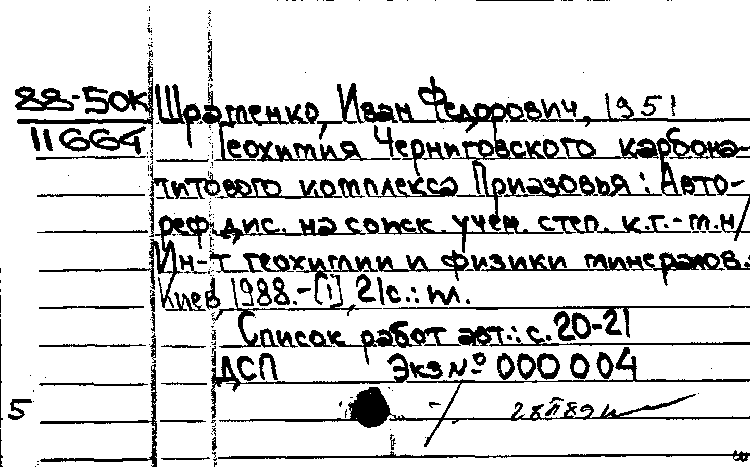 88-50к Шраменко, Иван Федорович, 1951
11664 Геохимия Черниговского карбона-
титового комплекса Приазовья : Авто-
реф. дис. на соиск. учен. степ. к.г.-м.н/
Ин-т геохимии и физики минералов.-
Киев, 1988.-[1], 21с.: ил.
Список работ авт.: с. 20-21
ДСП Экз № 000 004
5